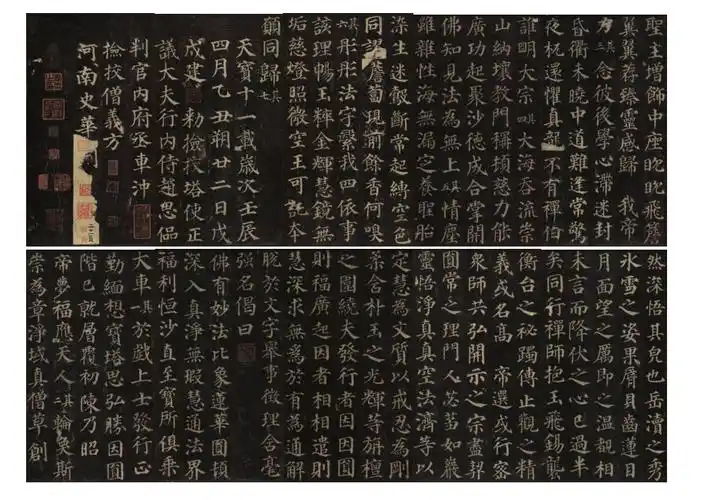 聖主增飾中座眈眈飛簷
翼翼荐臻靈感歸我帝
力其三念彼後學心滯迷封
昏衢未曉中道難逢常驚
夜枕還懼真龍不有禪伯
誰明大宗其四大海吞流崇
山納壤教門稱頓慈力能
廣功起聚沙德成合掌開
佛知見法為無上其五情塵
雖雜性海無漏定養聖胎
染生迷鷇斷常起縛空色
同謬薝蔔現前餘香何嗅
其六彤彤法宇繄我四依事
該理暢玉粹金輝慧鏡無
垢慈燈照微空王可託本
願同歸其七
天寶十一載歲次壬辰
四月乙丑朔廿二日戊
戌建勑檢校塔使正
議大夫行內侍趙思侃
判官內府丞車沖
檢校僧義方
河南史華刻
然深悟其皃也岳瀆之秀
氷雪之姿果脣貝齒蓮目
月面望之厲即之溫覩相
未言而降伏之心已過半
矣同行禪師抱玉飛錫襲
衡台之秘躅傳止觀之精
義或名高帝選或行密
衆師共弘開示之宗盡契
圓常之理門人苾蒭如巖
靈悟淨真真空法濟等以
定慧為文質以戒忍為剛
柔含朴玉之光輝等旃檀
之圍繞夫發行者因因圓
則福廣起因者相相遣則
慧深求無為於有為通解
脫於文字舉事徵理含毫
强名偈曰
佛有妙法比象蓮華圓頓
深入真淨無瑕慧通法界
福利恒沙直至寶所俱乗
大車其一於戲上士發行正
勤緬想寶塔思弘勝因圓
階已就層覆初陳乃昭
帝夢福應天人其二輪奐斯
崇為章淨域真僧草創